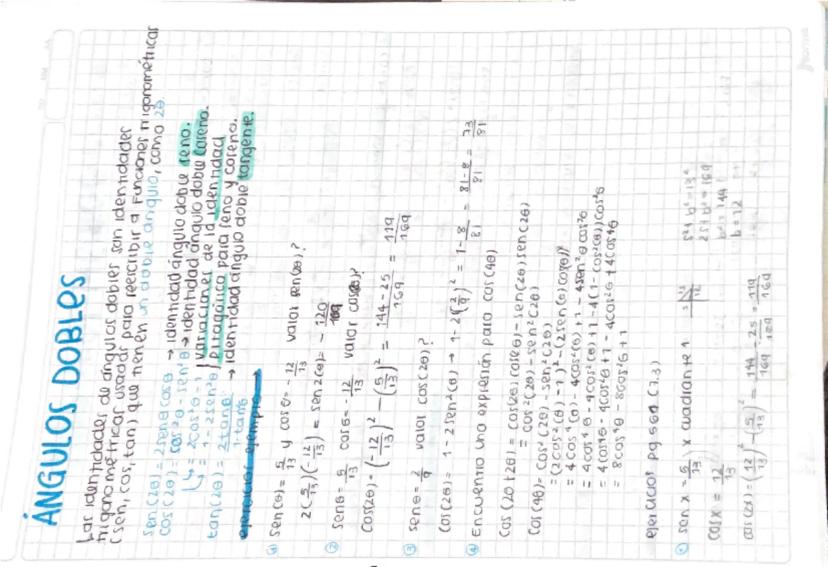 ÁNGULOS DOBLES
Las identidades de ángulos dobles son identidades
trigonométricas usadas para reescribir a funciones trigonométricas
(sen, cos, tan) que tienen un doble ángulo, como 2θ.
sen(2θ) = 2senθcosθ → identidad ángulo doble seno.
cos(2θ) = cos²θ - sen²θ → identidad ángulo doble coseno.
↳ = 2cos²θ - 1 } variaciones de la identidad
= 1 - 2sen²θ } pitagórica para seno y coseno.
tan(2θ) = 2tanθ / 1-tan²θ → identidad ángulo doble tangente.
ejercicios ejemplo
① sen(θ) = 5/13 y cosθ = -12/13 valor sen(2θ)?
2(5/13)(-12/13) = sen2(θ) = -120/169
② senθ = 5/13 cosθ = -12/13 valor cos(2θ)?
cos(2θ) = (-12/13)² - (5/13)² = 144-25/169 = 119/169
③ senθ = 2/9 valor cos(2θ)?
cos(2θ) = 1 - 2sen²(θ) → 1 - 2(2/9)² = 1 - 8/81 = 81-8/81 = 73/81
④ Encuentro una expresión para cos(4θ)
cos(2θ+2θ) = cos(2θ)cos(2θ) - sen(2θ)sen(2θ)
= cos²(2θ) - sen²(2θ)
cos(4θ) = cos²(2θ) - sen²(2θ)
= (2cos²(θ) - 1)² - (2sen(θ)cos(θ))²
= 4cos⁴(θ) - 4cos²(θ) + 1 - 4sen²θcos²θ
= 4cos⁴θ - 4cos²(θ) + 1 - 4(1 - cos²(θ))cos²θ
= 4cos⁴θ - 4cos²θ + 1 - 4cos²θ + 4cos⁴θ
= 8cos⁴θ - 8cos²θ + 1
ejercicios pg 560 (7.3)
sen x = 5/13 x cuadrante 1
5² + b² = 13²
25 + b² = 169
b² = 144
b = 12
cos x = 12/13
cos(2x) = (12/13)² - (5/13)² = 144/169 - 25/169 = 119/169